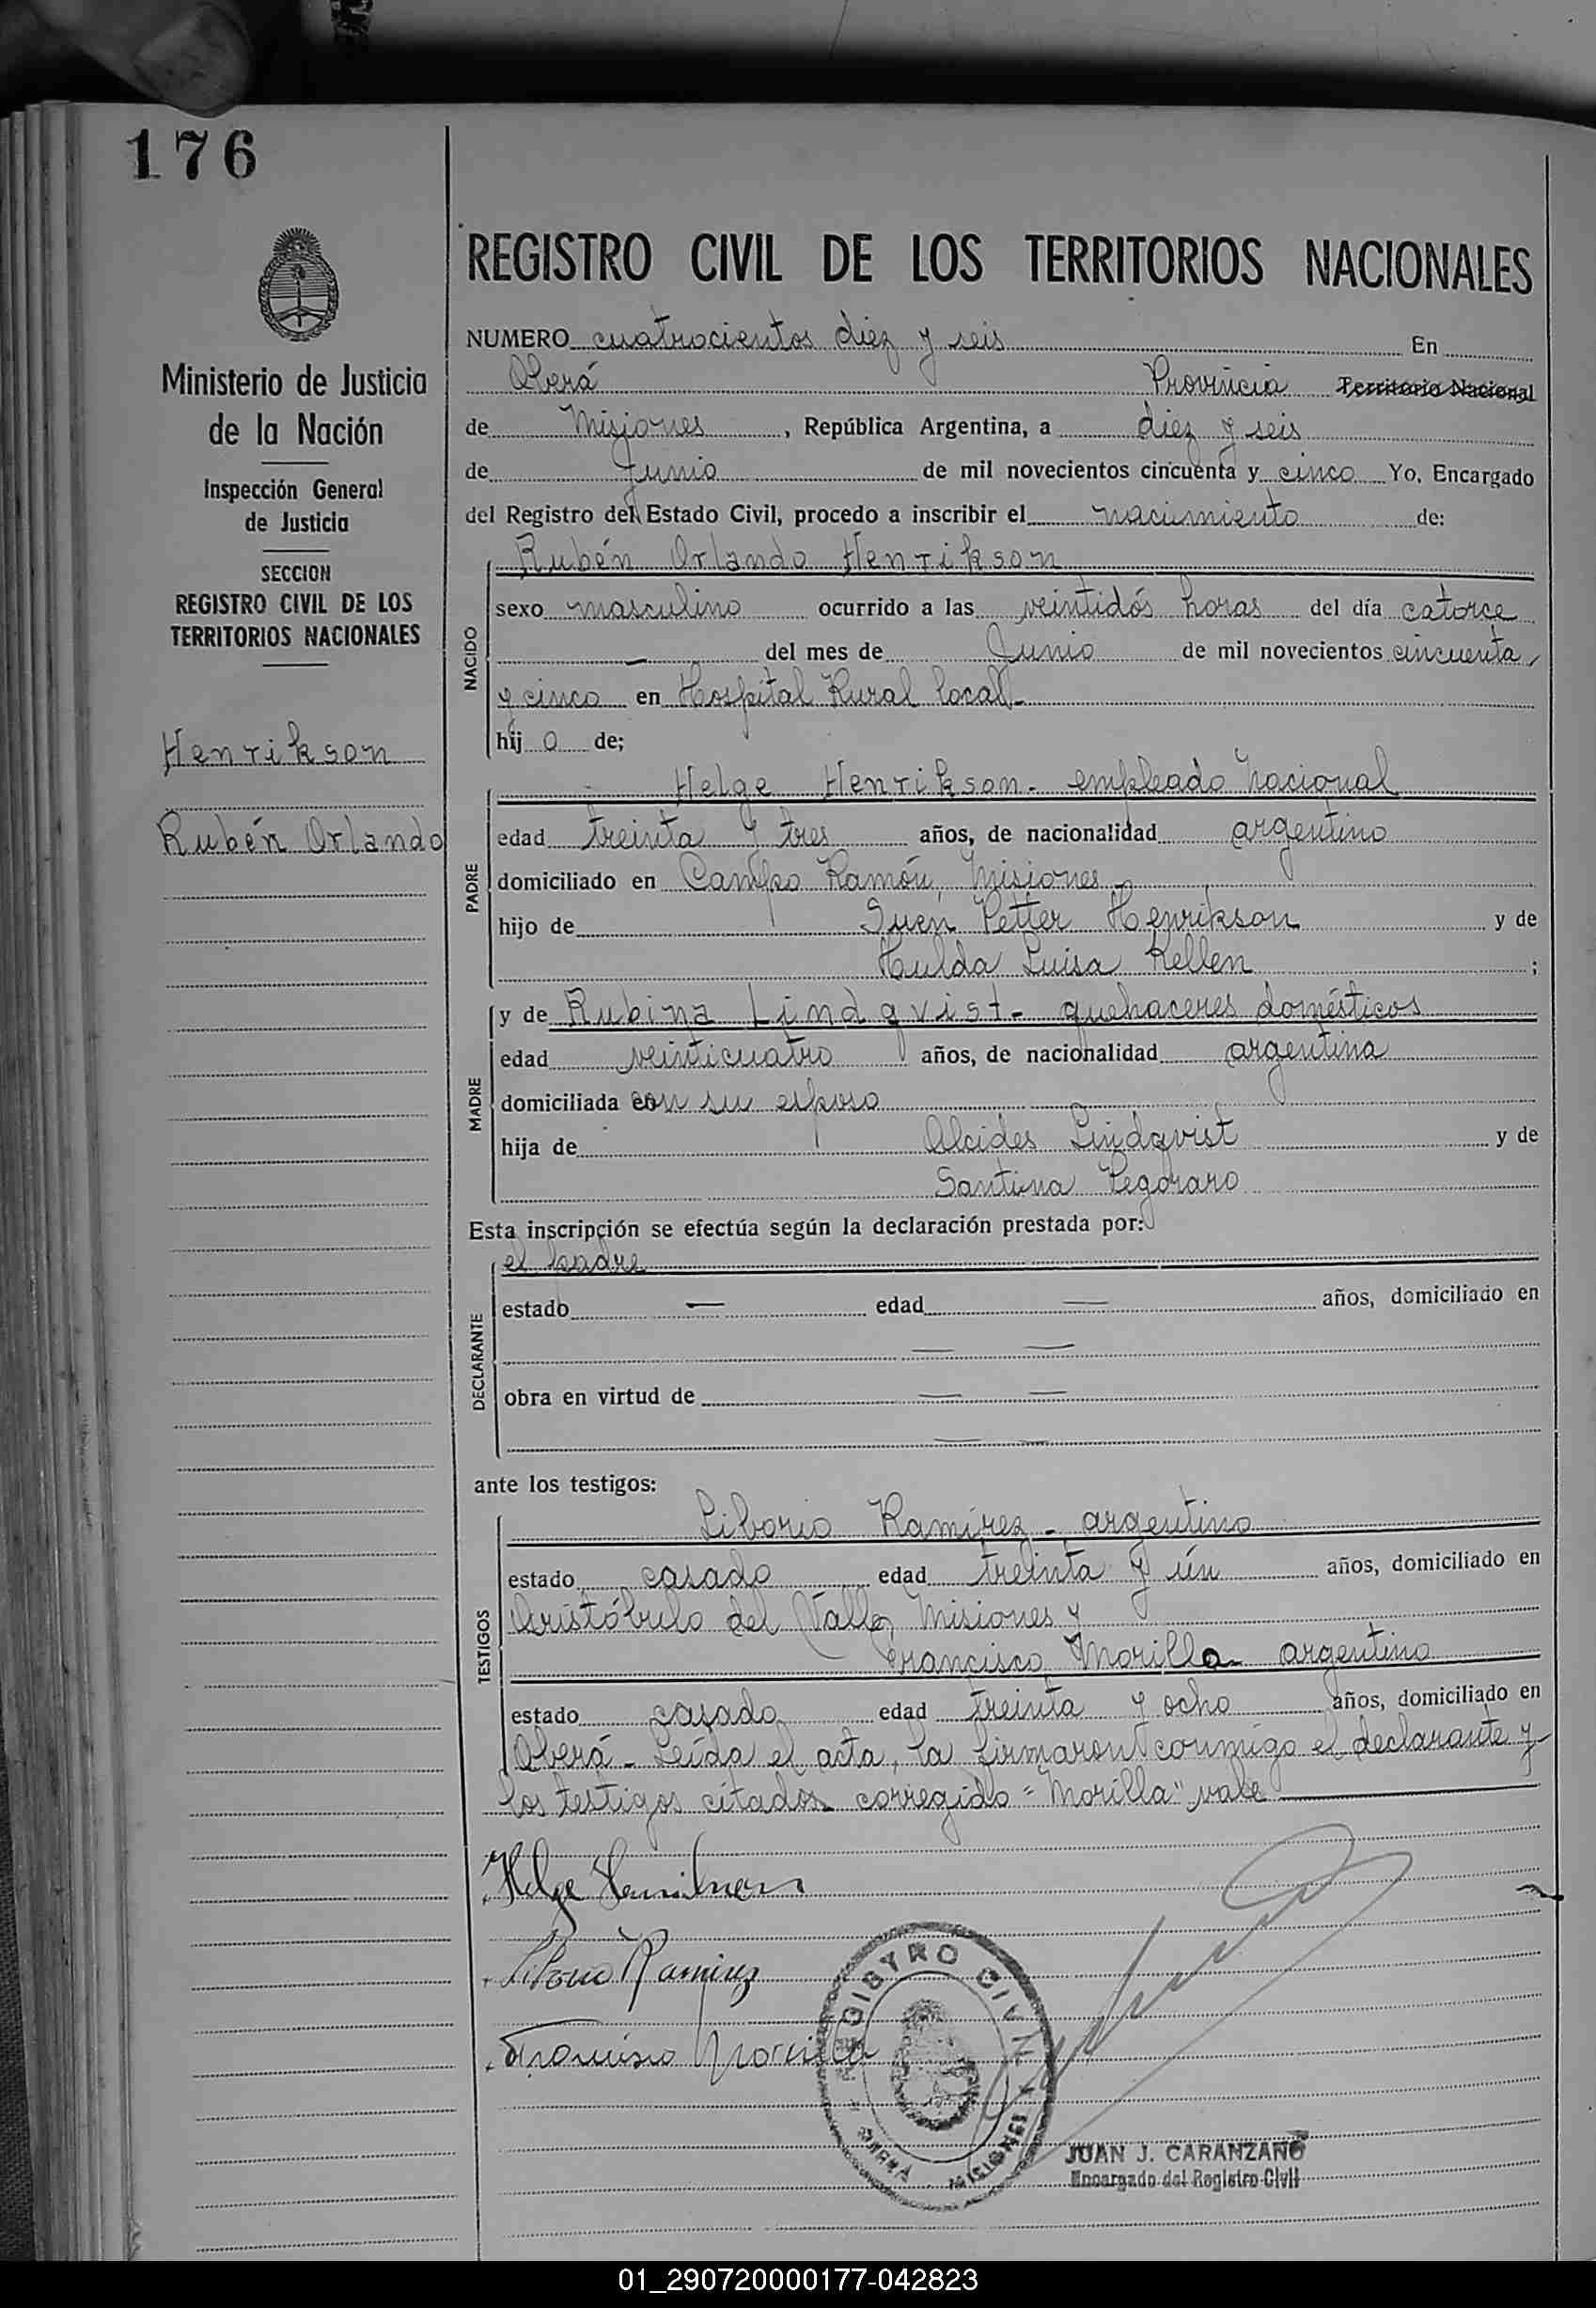 176
Ministerio de Justicia
de la Nación
Inspección General
de Justicia
SECCION
REGISTRO CIVIL DE LOS
TERRITORIOS NACIONALES
Henrikson
Rubén Orlando
REGISTRO CIVIL DE LOS TERRITORIOS NACIONALES
NUMERO cuatrocientos diez y seis En
Oberá Provincia Territorio Nacional
de Misiones, República Argentina, a diez y seis
de Junio de mil novecientos cincuenta y cinco Yo, Encargado
del Registro del Estado Civil, procedo a inscribir el nacimiento de:
NACIDO
Rubén Orlando Henrikson
sexo masculino ocurrido a las veintidós horas del día catorce
— del mes de Junio de mil novecientos cincuenta
y cinco en Hospital Rural local-
hij o de;
PADRE
Helge Henrikson - empleado nacional
edad treinta y tres años, de nacionalidad argentino
domiciliado en Campo Ramón, Misiones
hijo de Suen Petter Henrikson y de
Hulda Luisa Kellen ;
MADRE
y de Rubina Lindqvist - quehaceres domésticos
edad veinticuatro años, de nacionalidad argentina
domiciliada con su esposo
hija de Alcides Lindqvist y de
Santina Pegoraro
Esta inscripción se efectúa según la declaración prestada por:
DECLARANTE
el padre
estado — edad — años, domiciliado en
— —
obra en virtud de — —
— —
ante los testigos:
TESTIGOS
Liborio Ramírez - argentino
estado casado edad treinta y ún años, domiciliado en
Aristóbulo del Valle, Misiones y
Francisco Morilla - argentino
estado casado edad treinta y ocho años, domiciliado en
Oberá - Leída el acta, la firmaron conmigo el declarante y
los testigos citados - corregido = "Morilla" vale
Helge Henrikson
Liborio Ramirez
Francisco Morilla
REGISTRO CIVIL
OBERA - MISIONES
JUAN J. CARANZANO
Encargado del Registro Civil
01_290720000177-042823